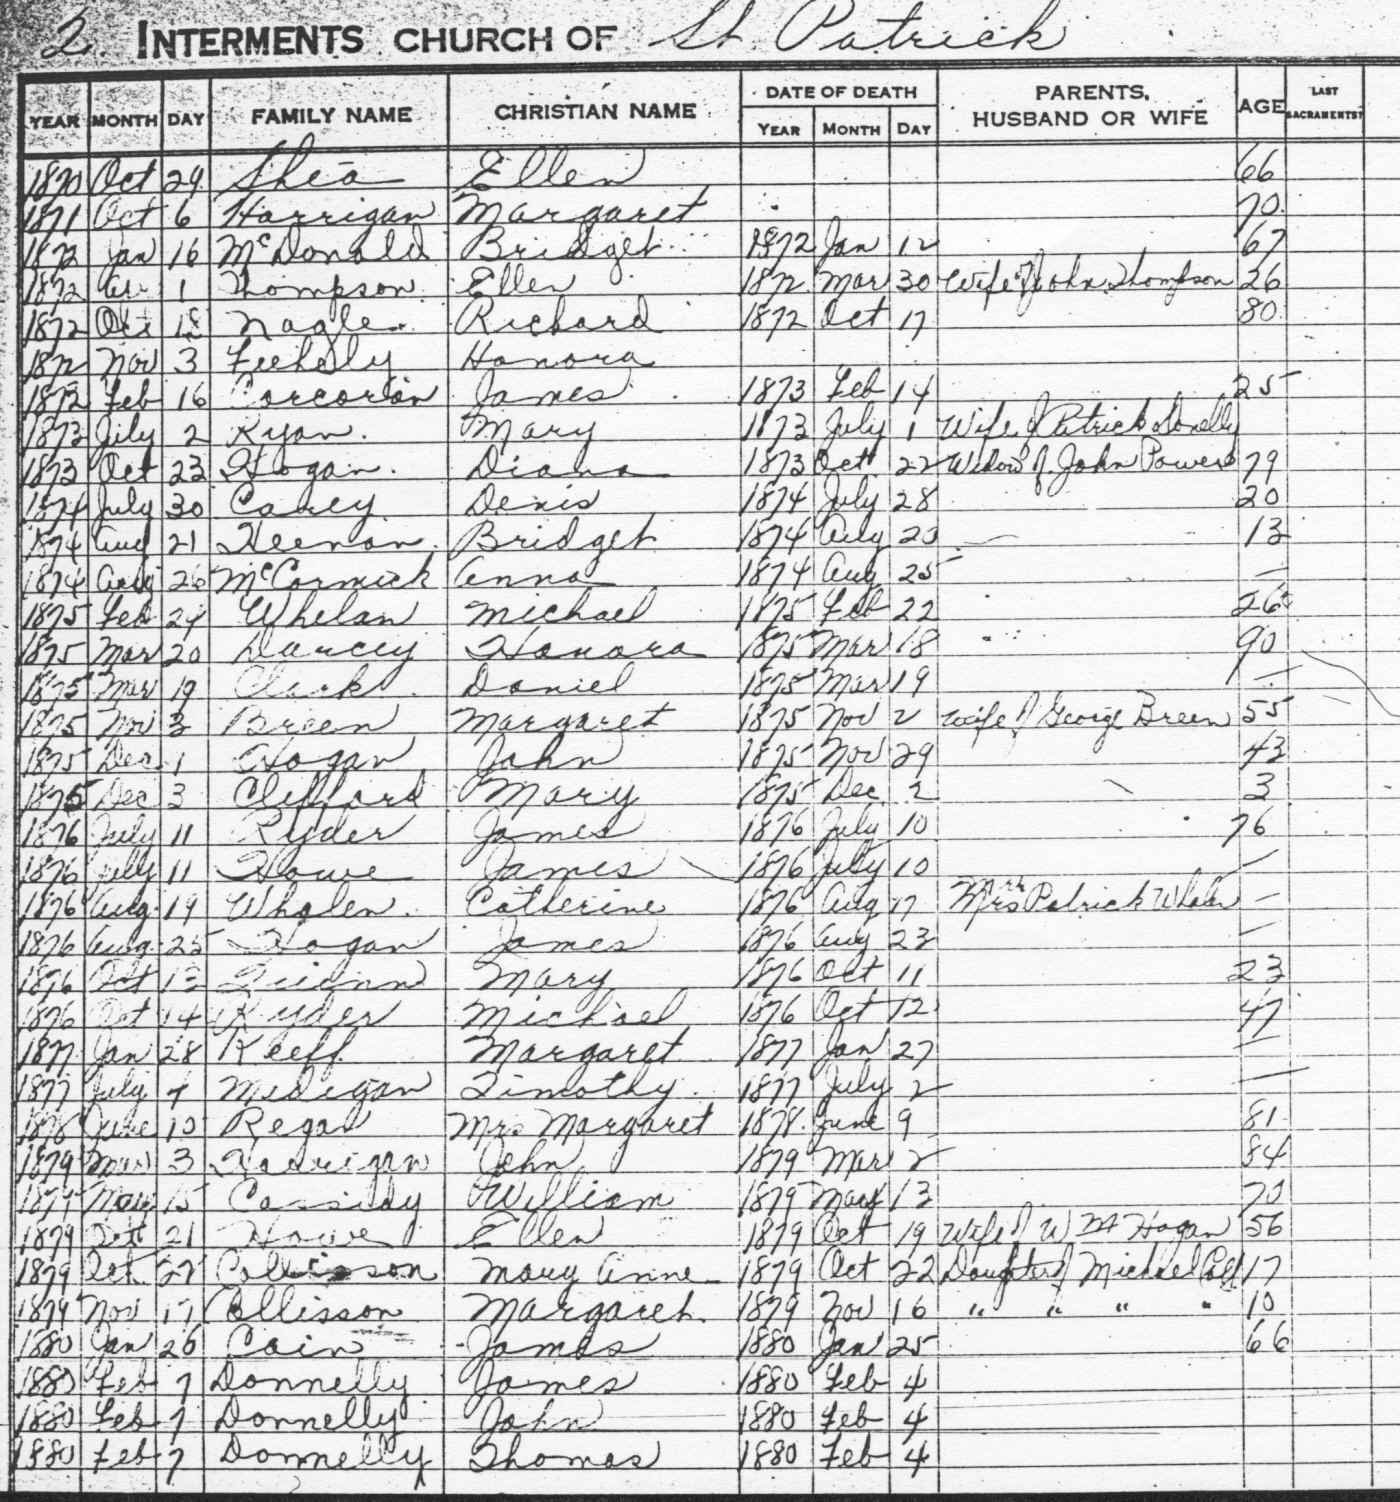 2. INTERMENTS CHURCH OF St. Patrick
YEAR MONTH DAY FAMILY NAME CHRISTIAN NAME DATE OF DEATH YEAR MONTH DAY PARENTS, HUSBAND OR WIFE AGE LAST SACRAMENTS?
1870 Oct 29 Shea Ellen 66
1871 Oct 6 Harrigan Margaret 70
1872 Jan 16 McDonald Bridget 1872 Jan 12 67
1872 1 Thompson Ellen 1872 Mar 30 Wife of John Thompson 26
1872 Oct 18 Nagle Richard 1872 Oct 17 80
1872 Nov 3 Feehely Honora
1872 Feb 16 Corcoran James 1873 Feb 14 25
1873 July 2 Ryan Mary 1873 July 1 Wife of Patrick Donelly
1873 Oct 23 Hogan Diana 1873 Oct 22 Widow of John Powers 79
1874 July 30 Carey Denis 1874 July 28 20
1874 Aug 21 Heenan Bridget 1874 Aug 20 13
1874 Aug 26 McCormick Anna 1874 Aug 25 —
1875 Feb 24 Whelan Michael 1875 Feb 22 26
1875 Mar 20 Darcey Honora 1875 Mar 18 90
1875 Mar 19 Clark Daniel 1875 Mar 19 —
1875 Nov 3 Breen Margaret 1875 Nov 2 Wife of George Breen 55
1875 Dec 1 Hogan John 1875 Nov 29 43
1875 Dec 3 Clifford Mary 1875 Dec 2 3
1876 July 11 Ryder James 1876 July 10 76
1876 July 11 Howe James 1876 July 10 —
1876 Aug 19 Whalen Catherine 1876 Aug 17 Mrs Patrick Whalen —
1876 Aug 25 Hogan James 1876 Aug 23 —
1876 Oct 13 Quinn Mary 1876 Oct 11 23
1876 Oct 14 Ryder Michael 1876 Oct 12 47
1877 Jan 28 Keeff Margaret 1877 Jan 27 —
1877 July 4 Medigan Timothy 1877 July 2 —
1878 June 10 Regan Mrs Margaret 1878 June 9 81
1879 Mar 3 Harrigan John 1879 Mar 2 84
1879 May 15 Cassidy William 1879 May 13 70
1879 Oct 21 Howe Ellen 1879 Oct 19 Wife of Wm Hogan 56
1879 Oct 27 Collisson Mary Anne 1879 Oct 22 Daughter of Michael Coll 17
1879 Nov 17 Collisson Margaret 1879 Nov 16 " " " " 10
1880 Jan 26 Cain James 1880 Jan 25 66
1880 Feb 7 Donnelly James 1880 Feb 4
1880 Feb 7 Donnelly John 1880 Feb 4
1880 Feb 7 Donnelly Thomas 1880 Feb 4